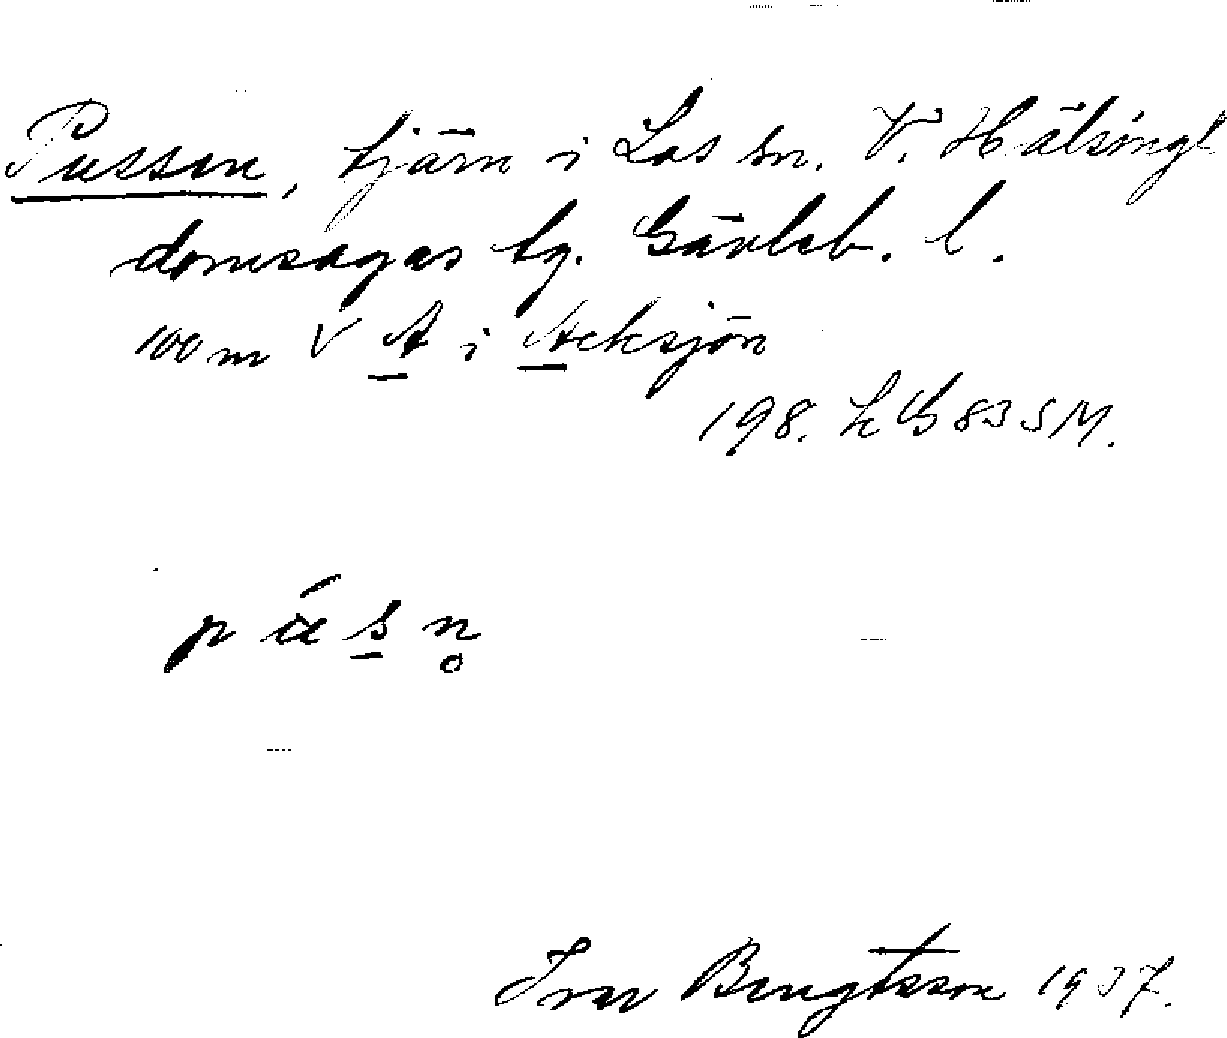 Pussen, tjärn i Los sn. V. Hälsingl
domsagas tg. Gävleb. l.
100 m V A i Acksjön
198. L G 83 SM.
Ivar Bengtsson 1937.